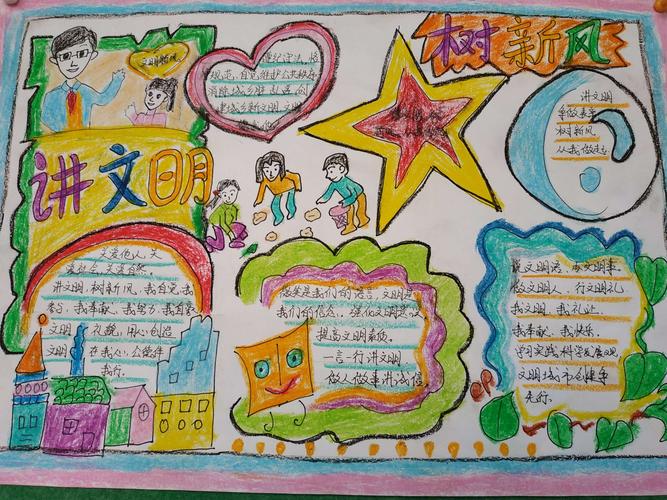 文明新风
遵纪守法,恪
规范,自觉维护公共秩序
消除城乡脏乱差,创
建城乡新文明
树新风
讲文明
争做表率
树新风
从我做起
讲文明
关爱他人,关
爱社会,关爱自然
讲文明,树新风,我自觉,我
我奉献,我努力,我自豪
文明 礼貌,用心创造
文明 在我心,公德伴
我行.
微笑是我们的语言,文明是
我们的信念.强化文明意识
提高文明素质.
一言一行讲文明
做人做事讲诚信
说文明话,办文明事.
做文明人,行文明礼
我文明,我礼让.
我奉献,我快乐.
学习实践科学发展观.
文明城市创建争
先行.